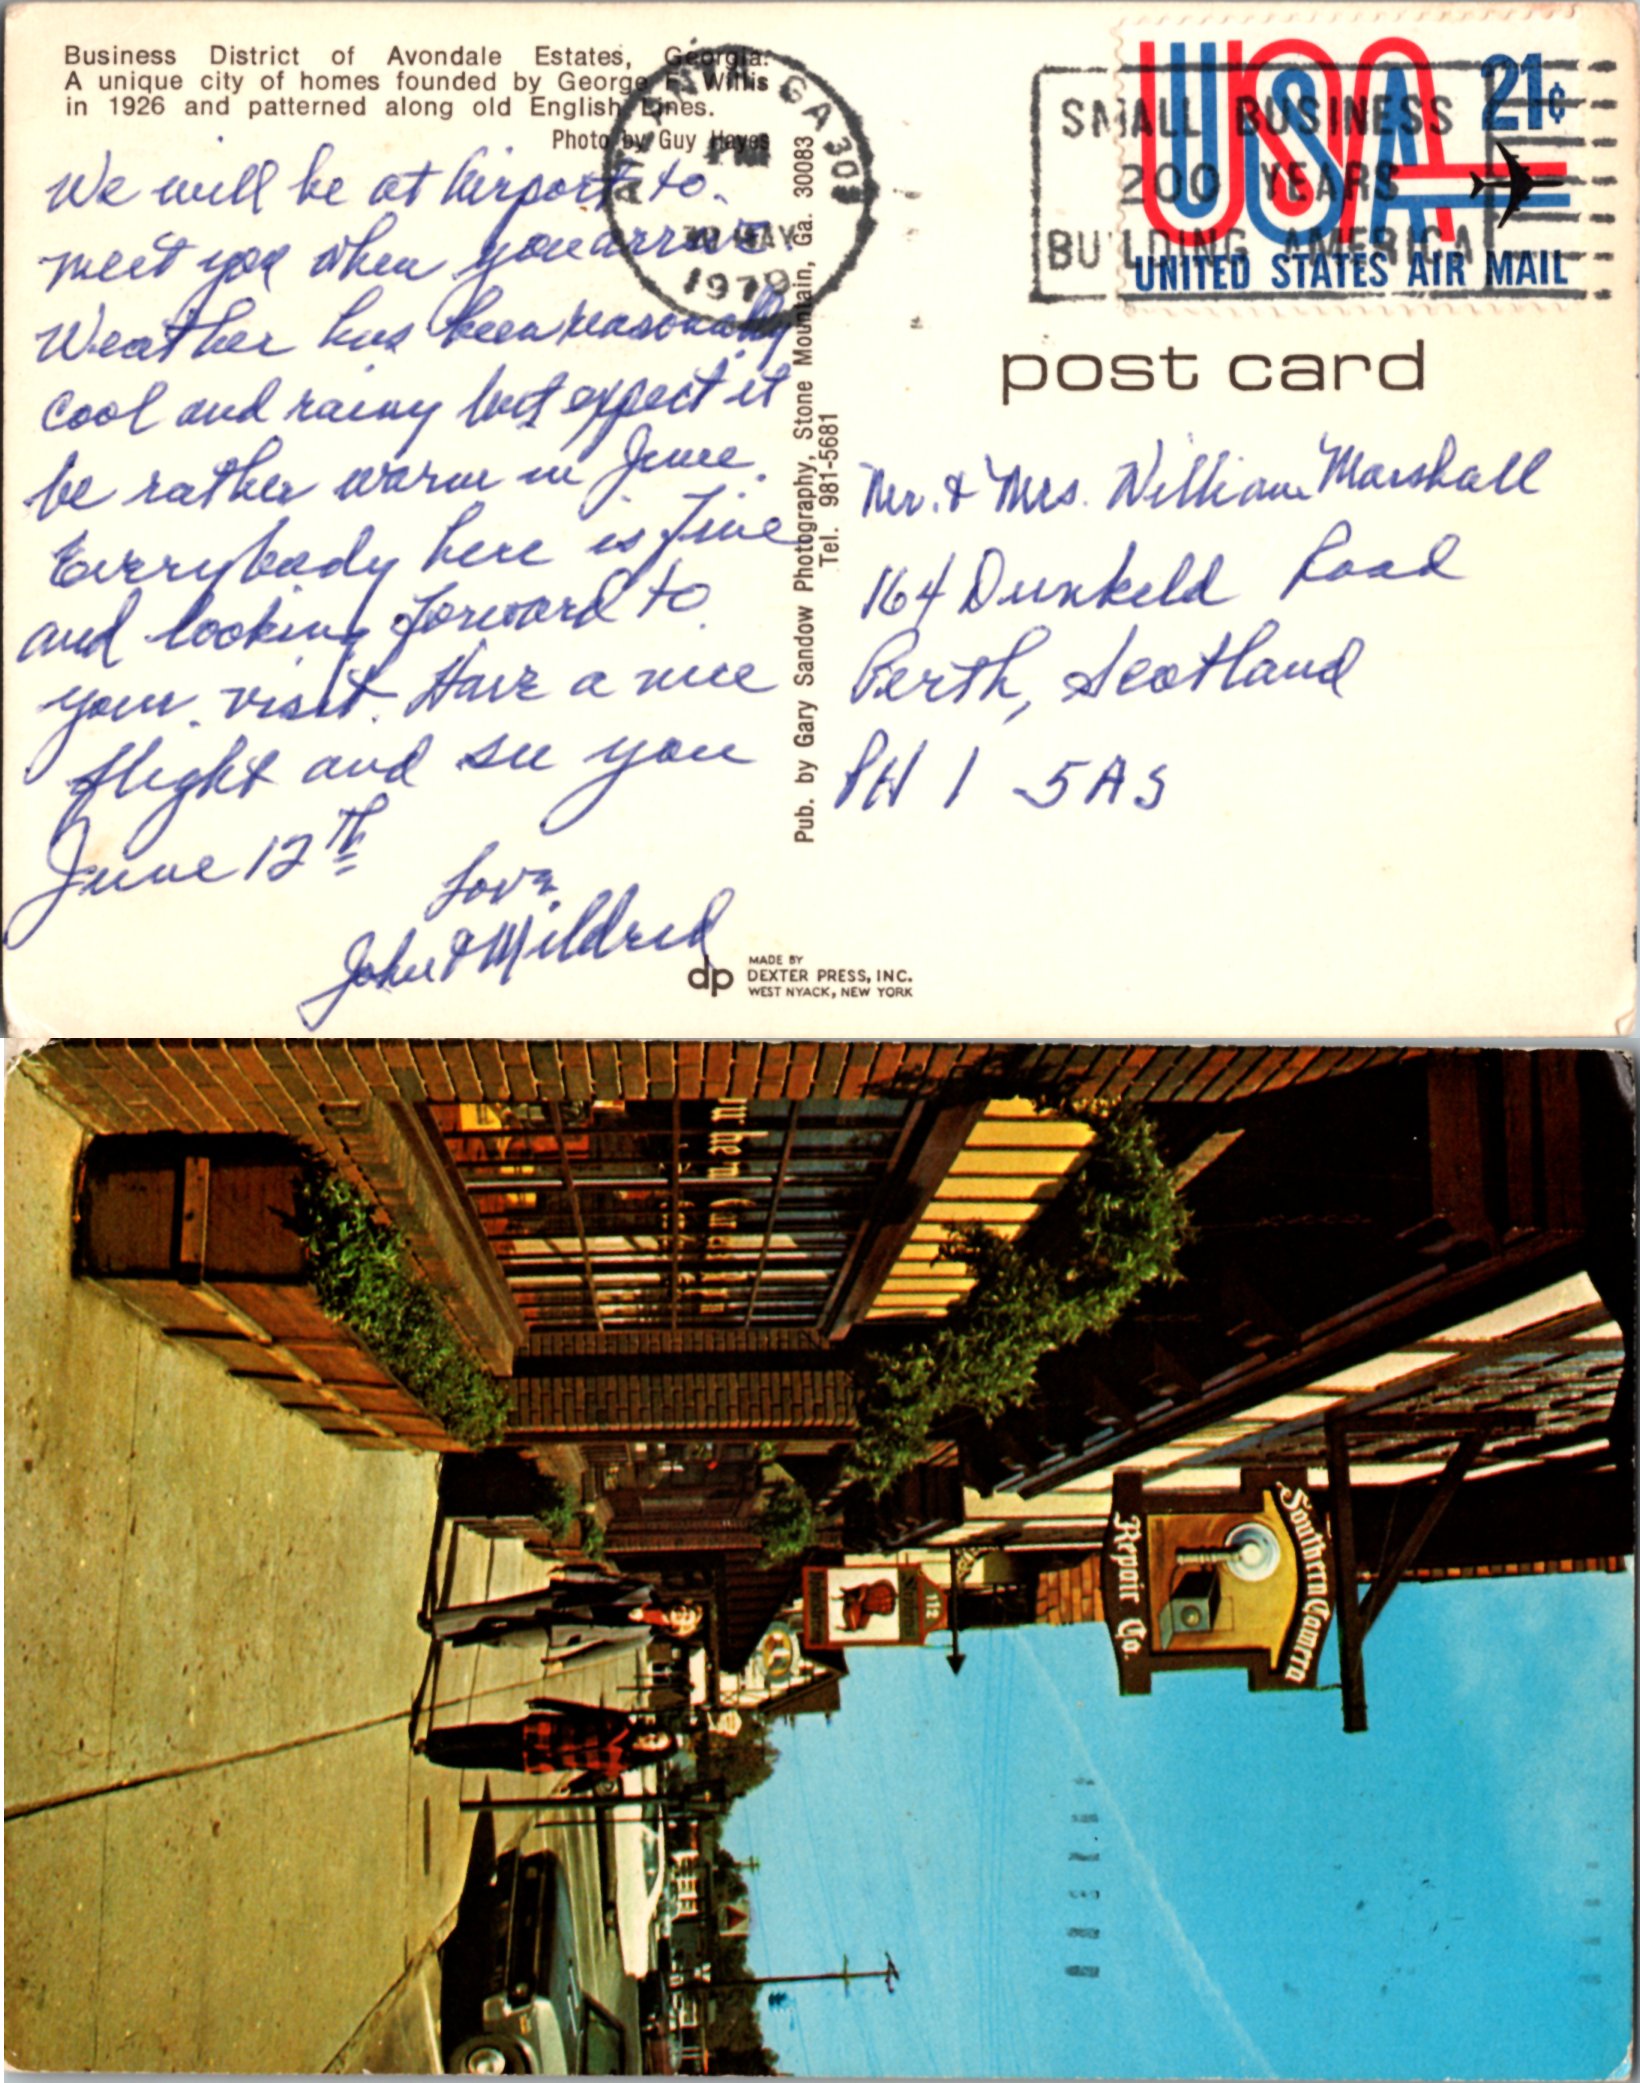 Business District of Avondale Estates, Georgia.
A unique city of homes founded by George F. Willis
in 1926 and patterned along old English Lines.
Photo by Guy Hayes
We will be at Airport to
meet you when you arrive
Weather has been reasonally
cool and rainy but expect it
be rather warm in June.
Everybody here is fine
and looking forward to
your visit. Have a nice
flight and see you
June 12th
Love
John & Mildred
Pub. by Gary Sandow Photography, Stone Mountain, Ga. 30083
Tel. 981-5681
GA 303
PM
MAY
1979
SMALL BUSINESS
200 YEARS
BUILDING AMERICA
USA 21¢
UNITED STATES AIR MAIL
post card
Mr. & Mrs. William Marshall
164 Dunkeld Road
Perth, Scotland
PH 1 5AS
dp
MADE BY
DEXTER PRESS, INC.
WEST NYACK, NEW YORK
Southern Camera
Repair Co.
112